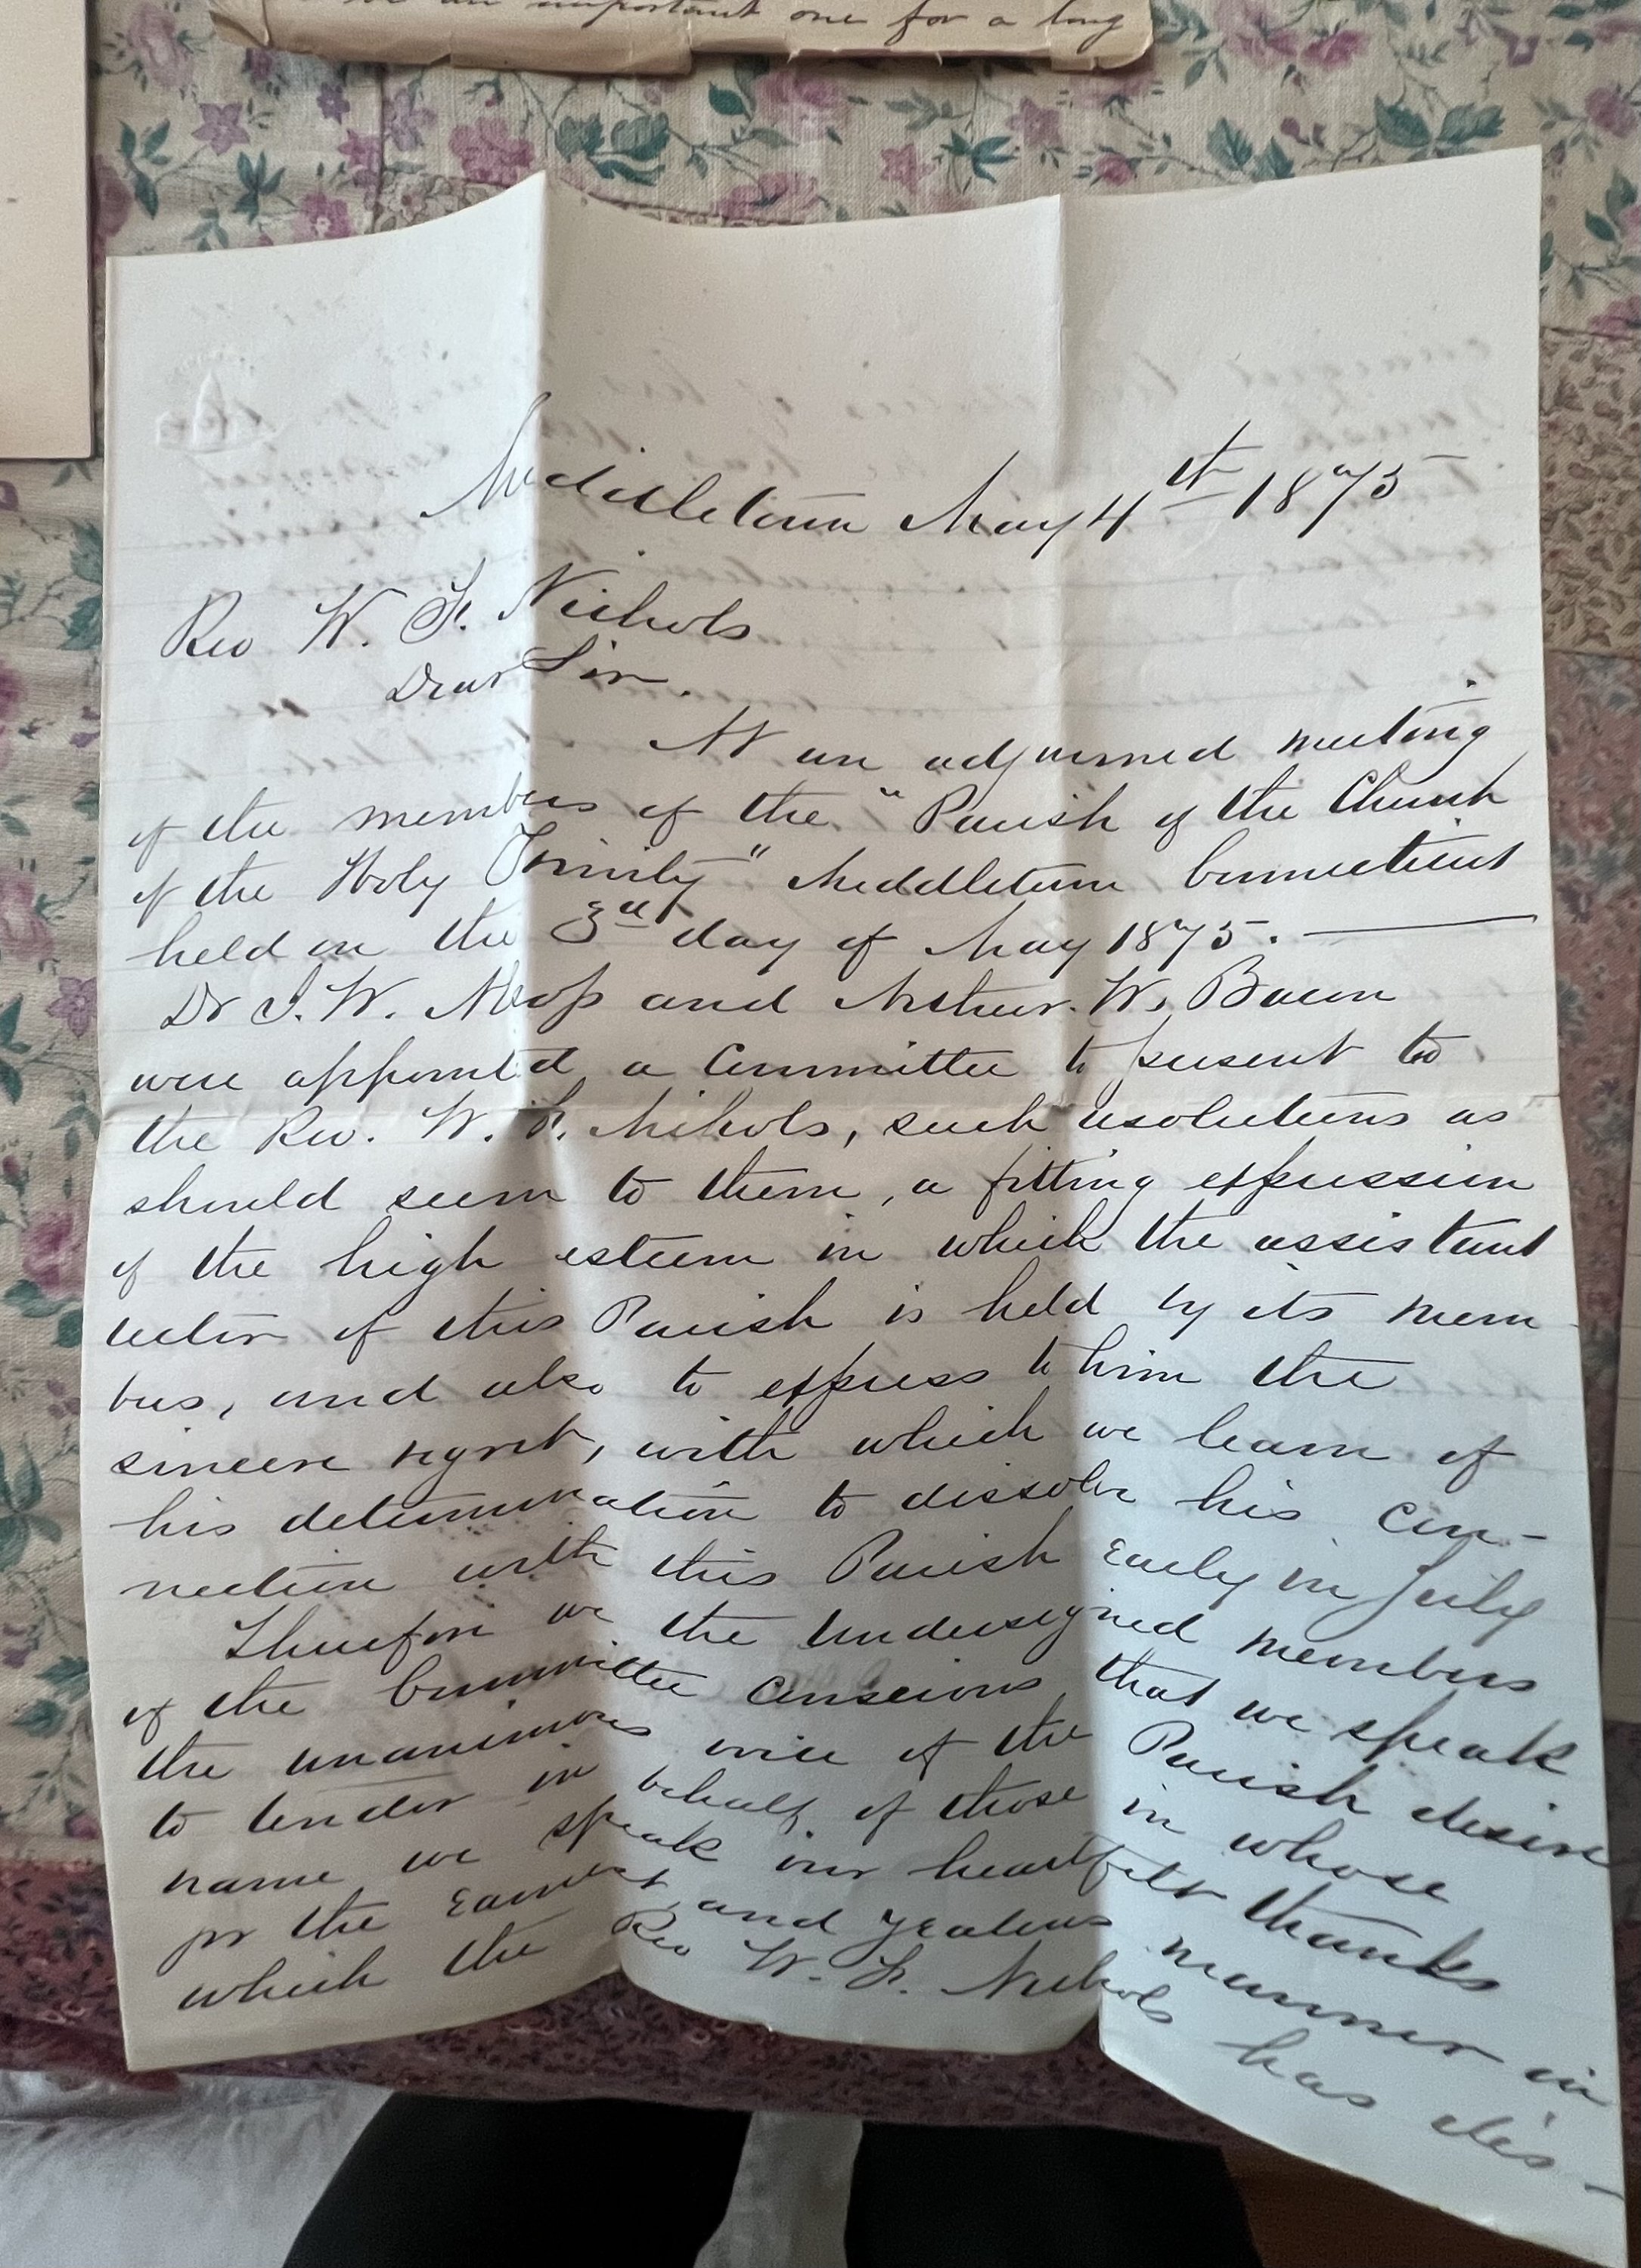 be an important one for a long
Middletown May 4th 1875
Rev W. F. Nichols
Dear Sir.
At an adjourned meeting
of the members of the "Parish of the Church
of the Holy Trinity" Middletown Connecticut
held on the 3rd day of May 1875.
Dr J. W. Alsop and Arthur. W. Bacon
were appointed a Committee to present to
the Rev. W. F. Nichols, such resolutions as
should seem to them, a fitting expression
of the high esteem in which the assistant
rector of this Parish is held by its mem
bers, and also to express to him the
sincere regret, with which we learn of
his determination to dissolve his con-
nection with this Parish Early in July
Therefore we the undersigned members
of the Committee conscious that we speak
the unanimous voice of the Parish desire
to tender in behalf of those in whose
name we speak our heartfelt thanks
for the Earnest and zealous manner in
which the Rev W. F. Nichols has dis-